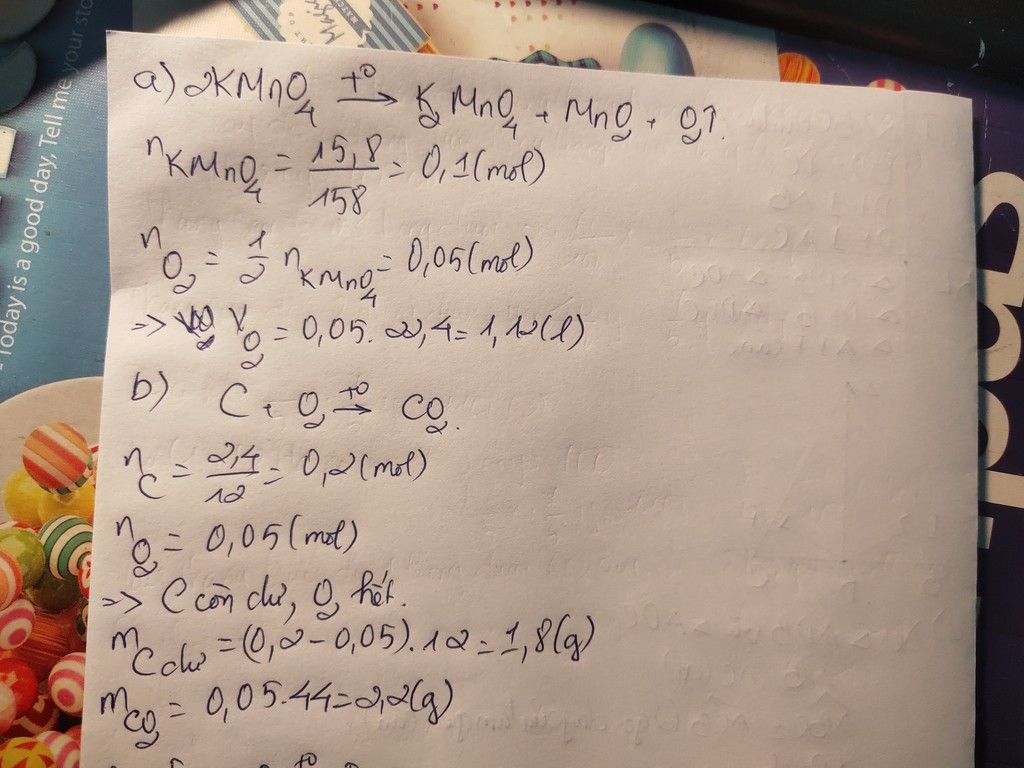 Today is a good day, Tell me your sto
a) 2KMnO₄ →(t°) K₂MnO₄ + MnO₂ + O₂↑.
n KMnO₄ = 15,8/158 = 0,1 (mol)
n O₂ = 1/2 n KMnO₄ = 0,05 (mol)
=> V O₂ = 0,05. 22,4 = 1,12 (l)
b) C + O₂ →(t°) CO₂.
n C = 2,4/12 = 0,2 (mol)
n O₂ = 0,05 (mol)
=> C còn dư, O₂ hết.
m C dư = (0,2 - 0,05). 12 = 1,8 (g)
m CO₂ = 0,05. 44 = 2,2 (g)